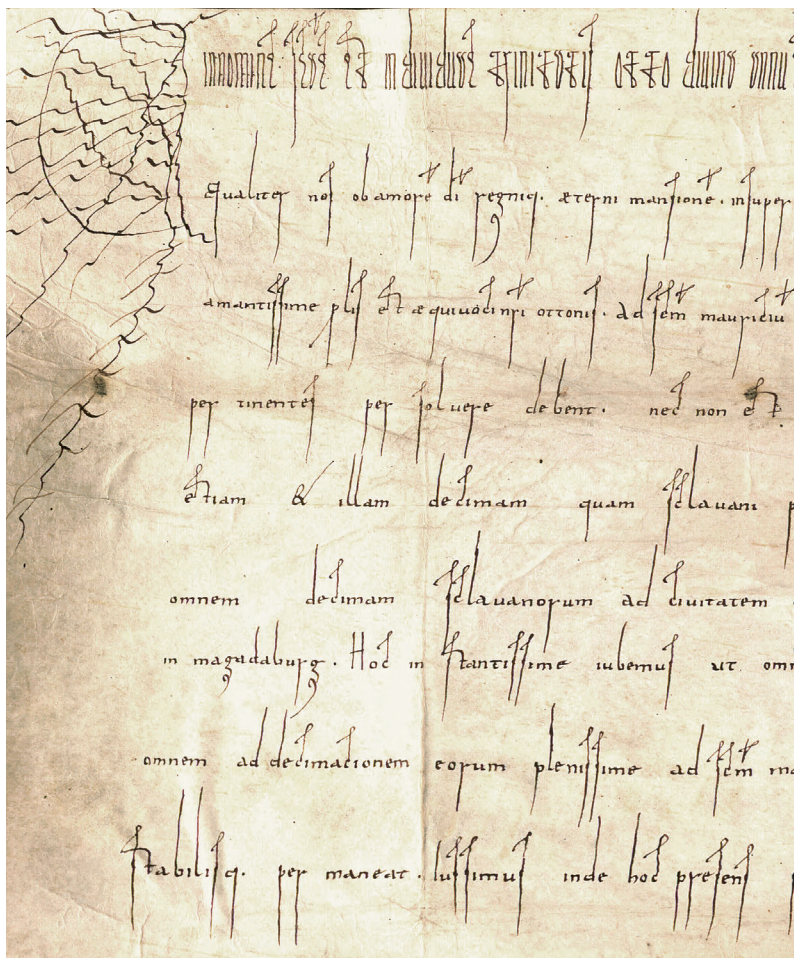 in nomine sc̄ae et individuae trinitatis otto divina
Qualiter nos ob amore dī regniq. æterni mansione. insuper
amantissime plis et æquivoci nr̄i ottonis. ad sc̄m mauriciu
per tinentes per solvere debent. nec non et
etiam & illam decimam quam sclavani
omnem decimam sclavanorum ad civitatem
in magadaburg. Hoc instantissime iubemus ut omn
omnem ad decimacionem eorum plenissime ad sc̄m
stabilisq. per maneat. Iussimus inde hoc presens